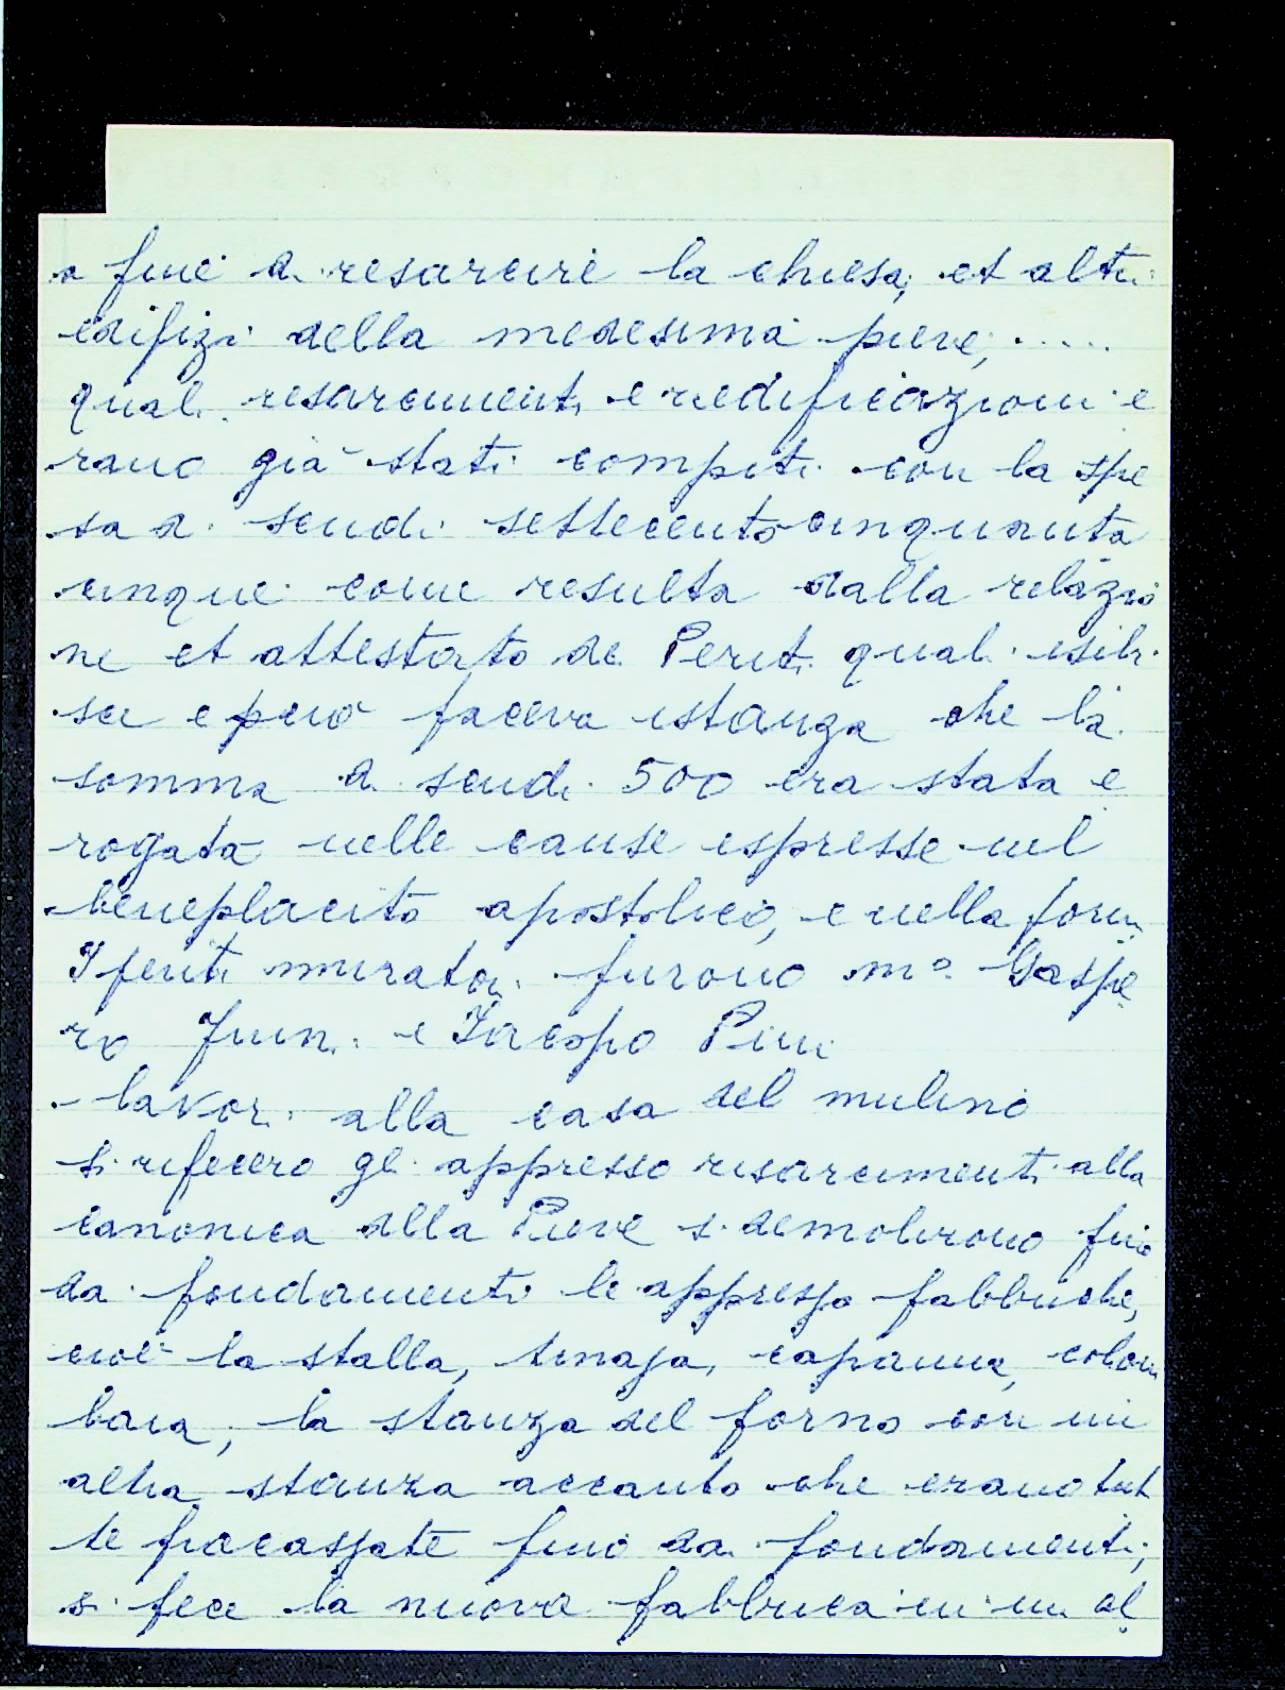 a fine di resarcire la chiesa, et altri
edifizi della medesima pieve, .....
quali resarcimenti e riedificazioni e
rano già stati compiti con la spe
sa di scudi settecento cinquanta
cinque come resulta dalla relazio
ne et attestato de Periti quali esibi
sce e però faceva istanza che la
somma di scudi 500 era stata e
rogata nelle cause espresse nel
beneplacito apostolico, e nella form
I periti muratori furono mo. Gaspe
ro Junni e Iacopo Pini
- lavori alla casa del mulino
si rifecero gli appresso risarcimenti alla
canonica della Pieve si demolirono fino
da fondamenti le appresso fabbriche,
cioè la stalla, tinaja, capanna, colom
baia, la stanza del forno con un
altra stanza accanto che erano tut
te fracassate fino da fondamenti,
si fece la nuova fabbrica in un al